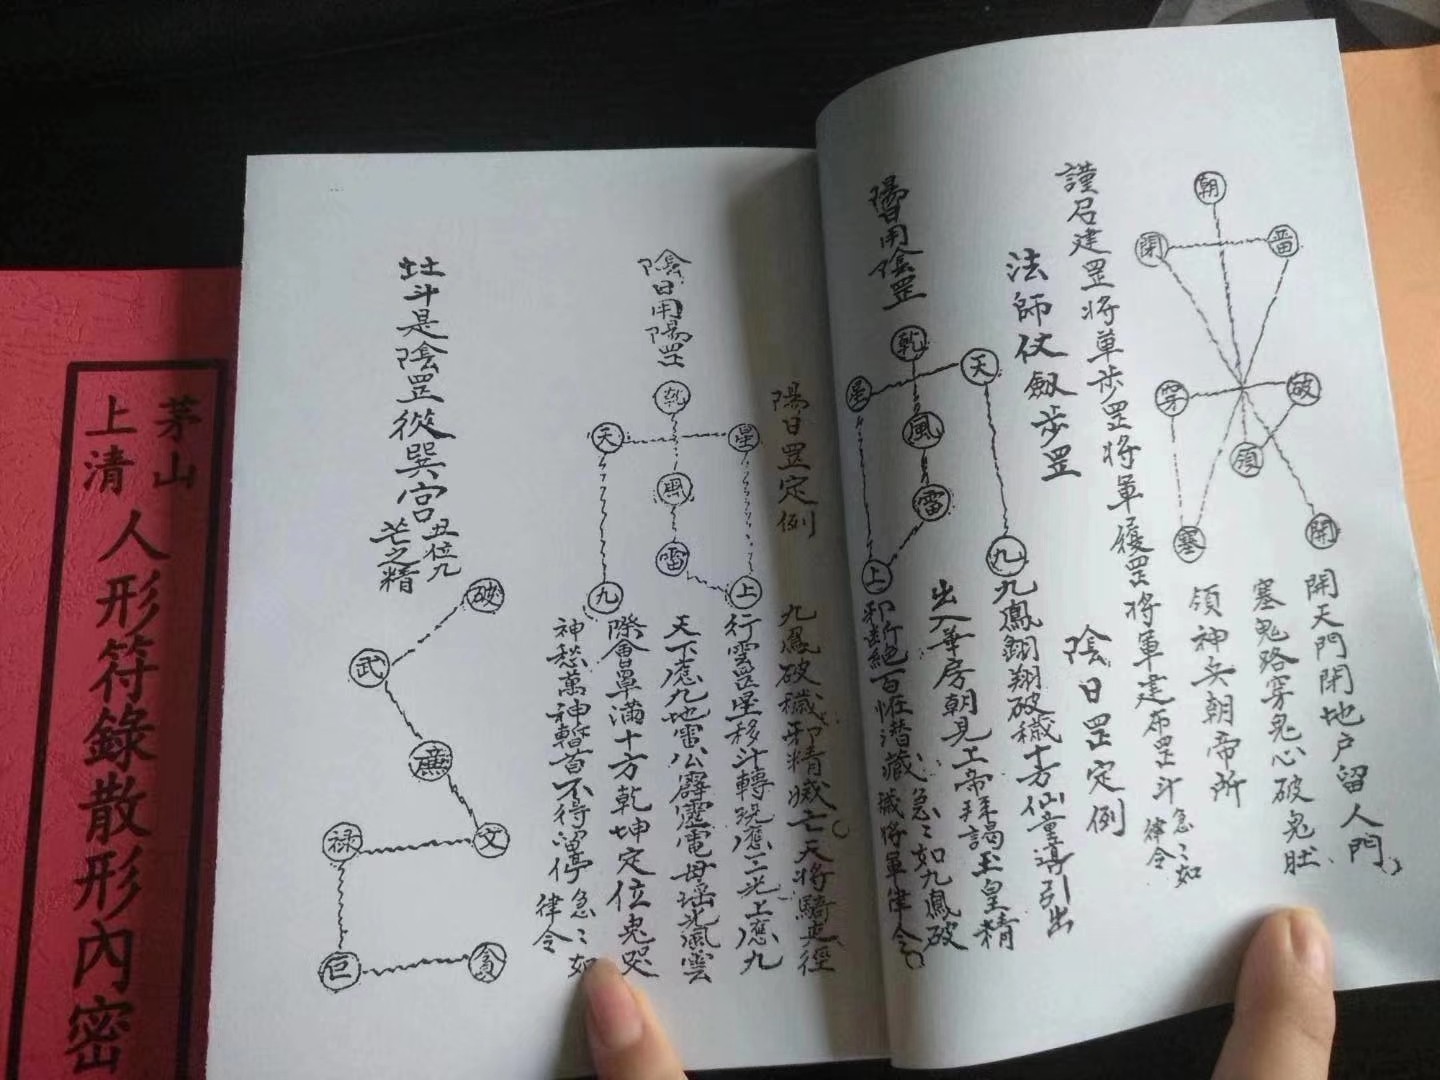 朝
閉
留
穿
破
領
塞
開
開天門閉地戶留人門、
塞鬼路穿鬼心破鬼肚、
領神兵朝帝所
謹召建罡將軍步罡將軍履罡將軍建布罡斗急〻如
律令
法師仗劔步罡
陰日罡定例
陽日用陰罡
乾
天
星
風
雷
上
九
九鳳翱翔破穢十方仙童導引出
出入華房朝見上帝拜謁玉皇精
邪斷絕百怪潛藏、急〻如九鳳破
穢將軍律令。
陽日罡定例
陰日用陽罡
乾
天
星
風
雷
九
上
九鳳破穢邪精滅亡。天將騎吏徑
行雲罡星移斗轉現應三光上應九
天下應九地雷公霹靂電母瑶光風雲
際會罩滿十方乾坤定位鬼哭
神愁萬神暫首不得留停急〻如
律令
壯斗是陰罡從巽宮丑位九
芒之精
破
武
廉
禄
文
巨
貪
茅山
上清
人形符錄散形內密